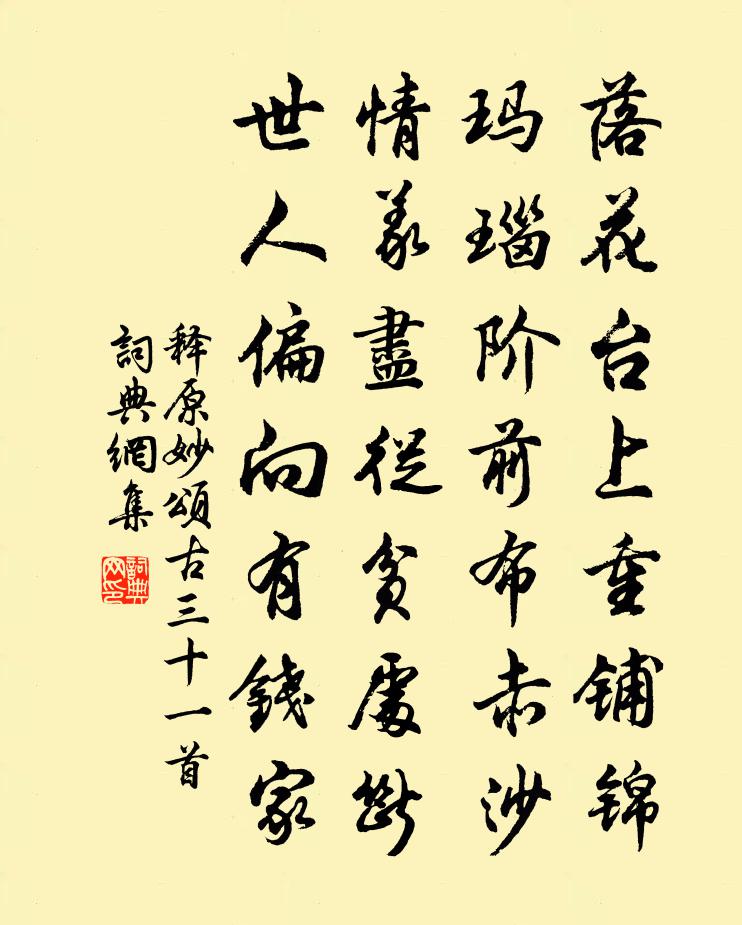 落花台上重铺锦
玛瑙阶前布赤沙
情義盡從貧處斷
世人偏向有錢家
释原妙頌古三十一首
詞典網集
詞典网印